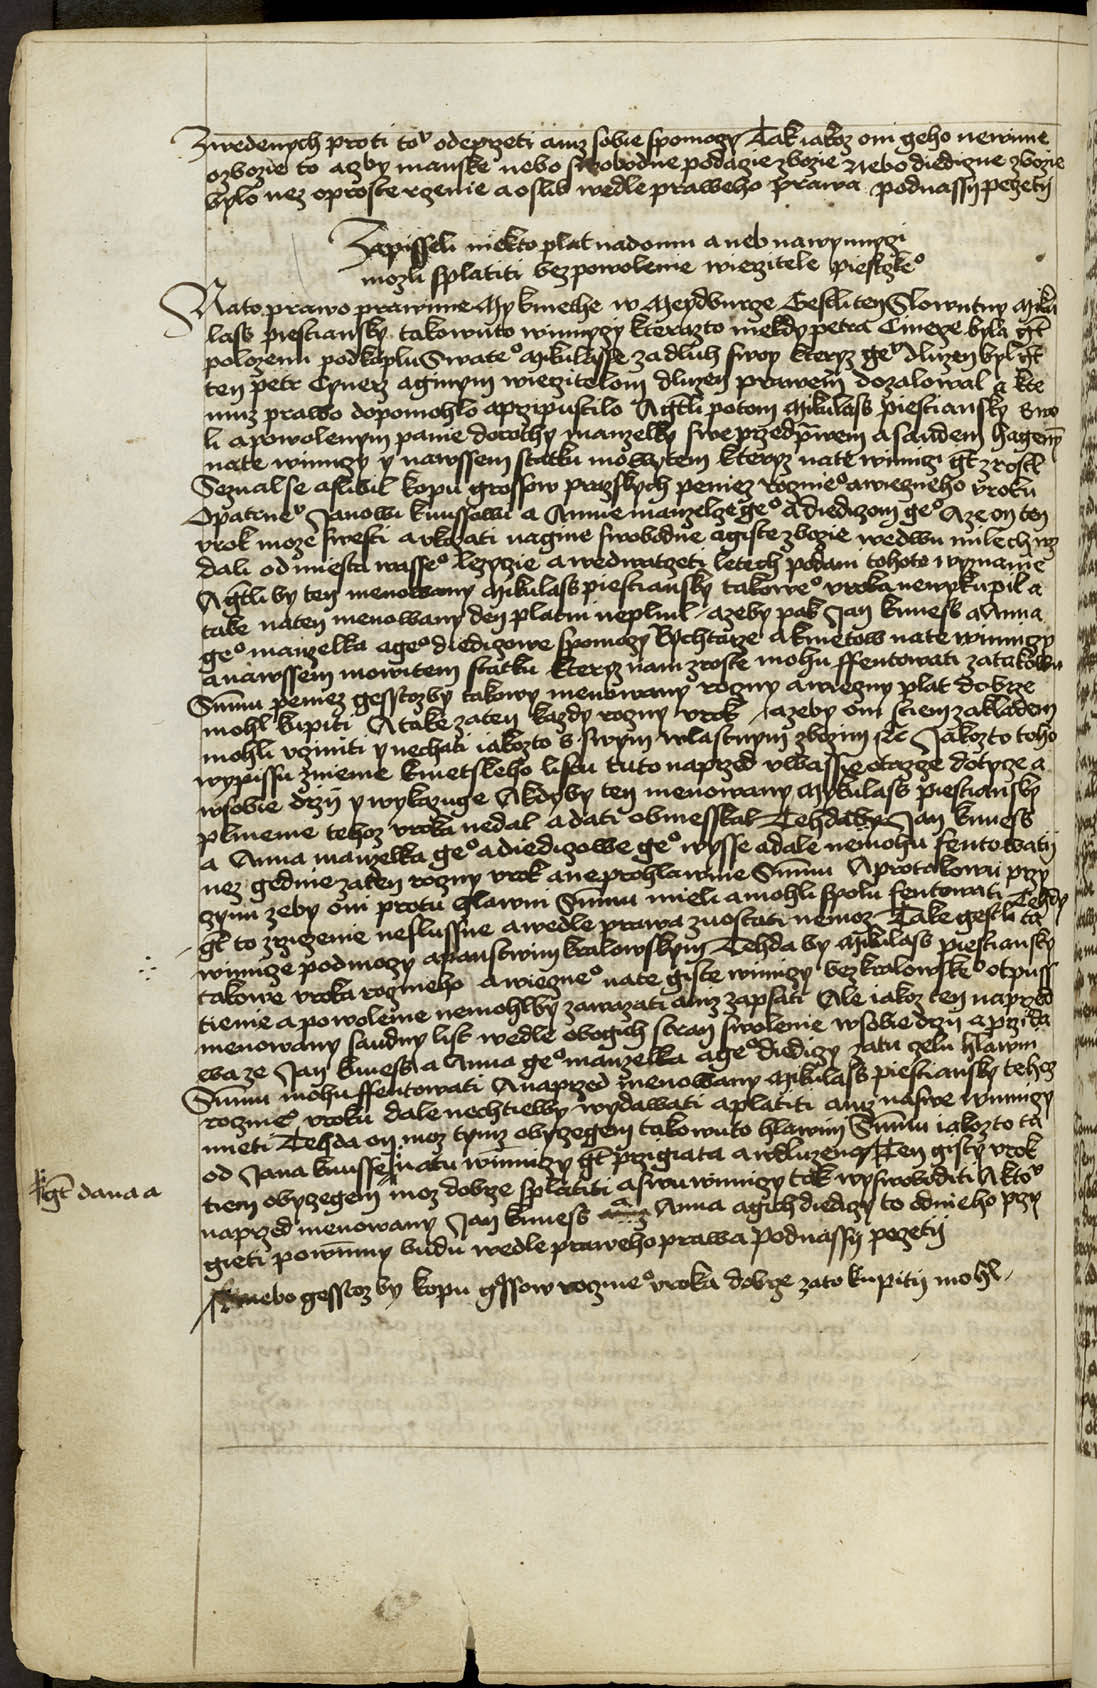 Zwedenych proti toᵛ odeprzeti aniz sobie spomozy Tak iakoz oni geho newinne
ozbozie to aczby manske nebo swobodne podacie zbozie nebo diedizne zbozie
bylo nez oproste rzenie a oslib wedle praweho prawa podnassy pezeti
Zapisseli niekto plat nadomu a neb nawynnyczi
mozli splatiti bezpowolenie wierzitele piestzkeᵒ
Nato prawo prawime My kmethe w Meydburze Gestli ten Slowutny Miku
lass piestiansky takowuto winnyczy kterazto niekdy petra Cinere byla gt
polozenu podkaplu Swateᵒ Mikulasse zadluh swoy kteryz geᵛ dluzen byl gt
ten petr Cynerz aginym wierzitelom dluzen prawem dozalowal a kte
nimz prawo dopomohlo aprzipustilo Agtli potom Mikulass piestiansky swo
li apowolenym panie dorothy manzelky swe przedprwem asandem hageny
nate winniczy y nawssem statku mowytem kteryz nate winniczi gt zrostl
Seznal se aslibil kopu grossow prazskych peniez rocznieᵒ awieczneho vroku
Opatrneᵛ Janowi knussowi a Annie manzelze geᵒ a diediczom geᵒ Aze on ten
vrok moze swesti avkazati nagine swobodne agiste zbozie wedwu milech wz
dali odmiesta wasseᵒ lezycie awedwatzeti letech podani tohoto wymanie
Agtli by ten menowany Mikulass piestiansky takoweᵒ vroka newykupil a
take naten menowany den platni neplnil azeby pak Jan kniess a Anna
geᵒ manzelka ageᵒ diedizowe spomozy Rychtarze akmetow nate winniczy
anawssem mowitem statku kteryz nam zroste mohu ffentowati zatakowu
Summu peniez gesstozby takowy menowany roczny awieczny plat dobrze
mohl kupiti A take zaten kazdy roczny vrok azeby oni stiem zakladem
mohli vciniti y nechati iakozto s swym wlastnym zbozim etc Jakozto toho
wypissu znieme kmetskeho listu tuto naprzed vwassie otazze dotycze a
wsobie drzij y wykazuge Akdyby ten menowany Mykulass piestiansky
plnieme tehoz vroka nedal adati obmesskal Tehdaby Jan kniess
a Anna manzelka geᵒ adiedizowe geᵒ wysse adale nemohu fentowatij
nez gedine zaten roczny vrok aneprohlawnie Summu Aprotakowu przy
zynu zeby oni protu hlawni Summu mieli amohli spolu fentowati Tehdy
gt to zrzizenie neslussne awedle prawa zuostati nemoz Take gestli ta
winnicze podmoczy apanstwim kralowskym Tehda by Mikulass piestiansky
takowe vroka roczneho awieczneᵒ nate giste winniczy bezkralowskeᵒ otpuss
tienie apowolenie nemohlby zawazati aniz zapsati Ale iakoz ten naprzed
menowany saudny list wedle obogich stran swolenie wsobie drzij aprzida
waze Jan kniess a Anna geᵒ manzelka ageᵒ diediczy zatu czelu hlawni
Summu mohu ffentowati Anaprzed menowany Mikulass piestiansky tehoz
roczneᵒ vroku dale nechtielby wydawati aplatiti aniz naswe winniczy
mieti Tehda on moz tymz obyczegem takowuto hlawni Summu iakozto ta
od Jana knusse natu winniczy gt przigiata awdluzena Ten gisty vrok
tiem obyczegem moz dobrze splatiti aswu winniczy tak wyswoboditi Aktoᵛ
gt dana a
naprzed menowany Jan kniess a Anna agich diediczy to odnieho przy
gieti powinny budu wedle praweho prawa Podnassy peczeti
nebo gesstoz by kopu gssow roczneᵒ vroka dobrze zato kupitij mohl